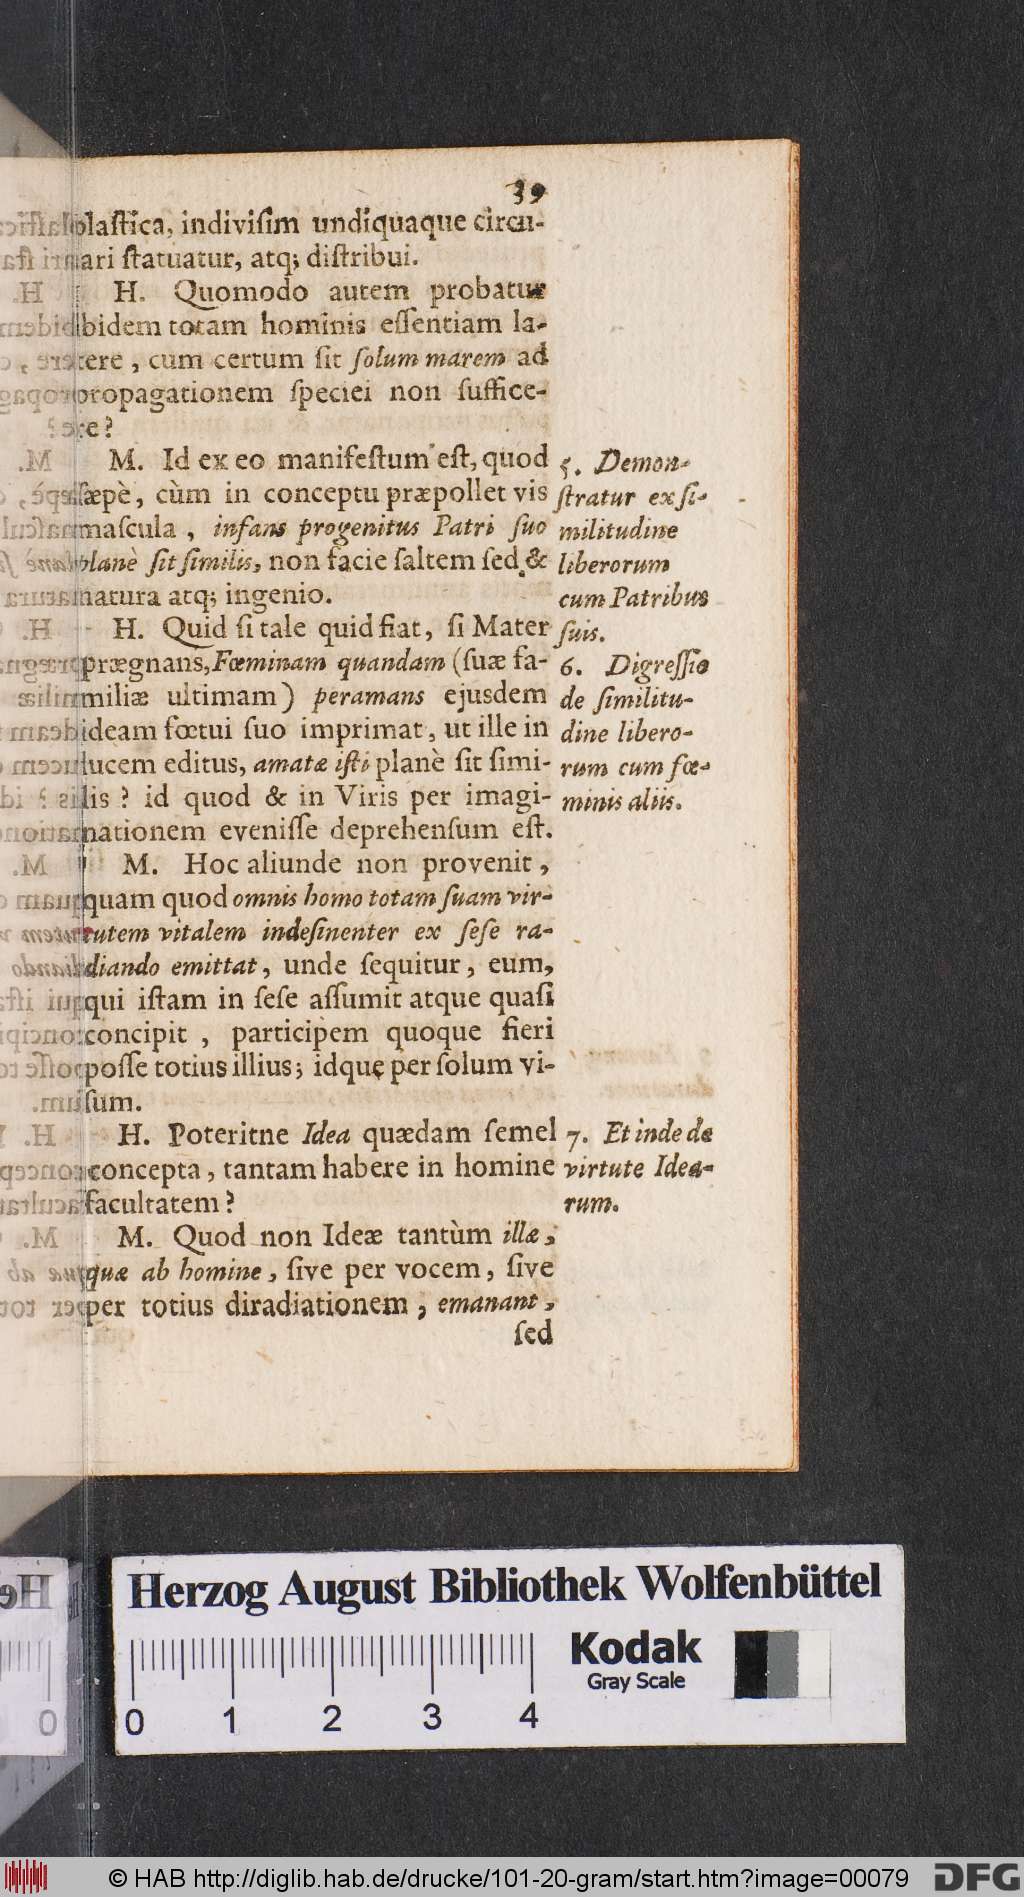 39
plaſtica, indiviſim undiquaque circu-
ari ſtatuatur, atq; diſtribui.
H. Quomodo autem probatur
ibidem totam hominis eſſentiam la-
tere, cum certum ſit ſolum marem ad
propagationem ſpeciei non ſuffice-
re?
M. Id ex eo manifeſtum eſt, quod
ſæpè, cùm in conceptu præpollet vis
maſcula, infans progenitus Patri ſuo
planè ſit ſimilis, non facie ſaltem ſed &
natura atq; ingenio.
5. Demon-
ſtratur ex ſi-
militudine
liberorum
cum Patribus
ſuis.
H. Quid ſi tale quid fiat, ſi Mater
prægnans, Fœminam quandam (ſuæ fa-
miliæ ultimam) peramans ejusdem
ideam fœtui ſuo imprimat, ut ille in
lucem editus, amatæ iſti planè ſit ſimi-
lis? id quod & in Viris per imagi-
nationem eveniſſe deprehenſum eſt.
6. Digreſſio
de ſimilitu-
dine libero-
rum cum fœ-
minis aliis.
M. Hoc aliunde non provenit,
quam quod omnis homo totam ſuam vir-
tutem vitalem indeſinenter ex ſeſe ra-
diando emittat, unde ſequitur, eum,
qui iſtam in ſeſe aſſumit atque quaſi
concipit, participem quoque fieri
poſſe totius illius; idque per ſolum vi-
ſum.
H. Poteritne Idea quædam ſemel
concepta, tantam habere in homine
facultatem?
7. Et inde de
virtute Idea-
rum.
M. Quod non Ideæ tantùm illæ,
quæ ab homine, ſive per vocem, ſive
per totius diradiationem, emanant,
ſed
Herzog August Bibliothek Wolfenbüttel
Kodak
Gray Scale
0 1 2 3 4
© HAB http://diglib.hab.de/drucke/101-20-gram/start.htm?image=00079
DFG